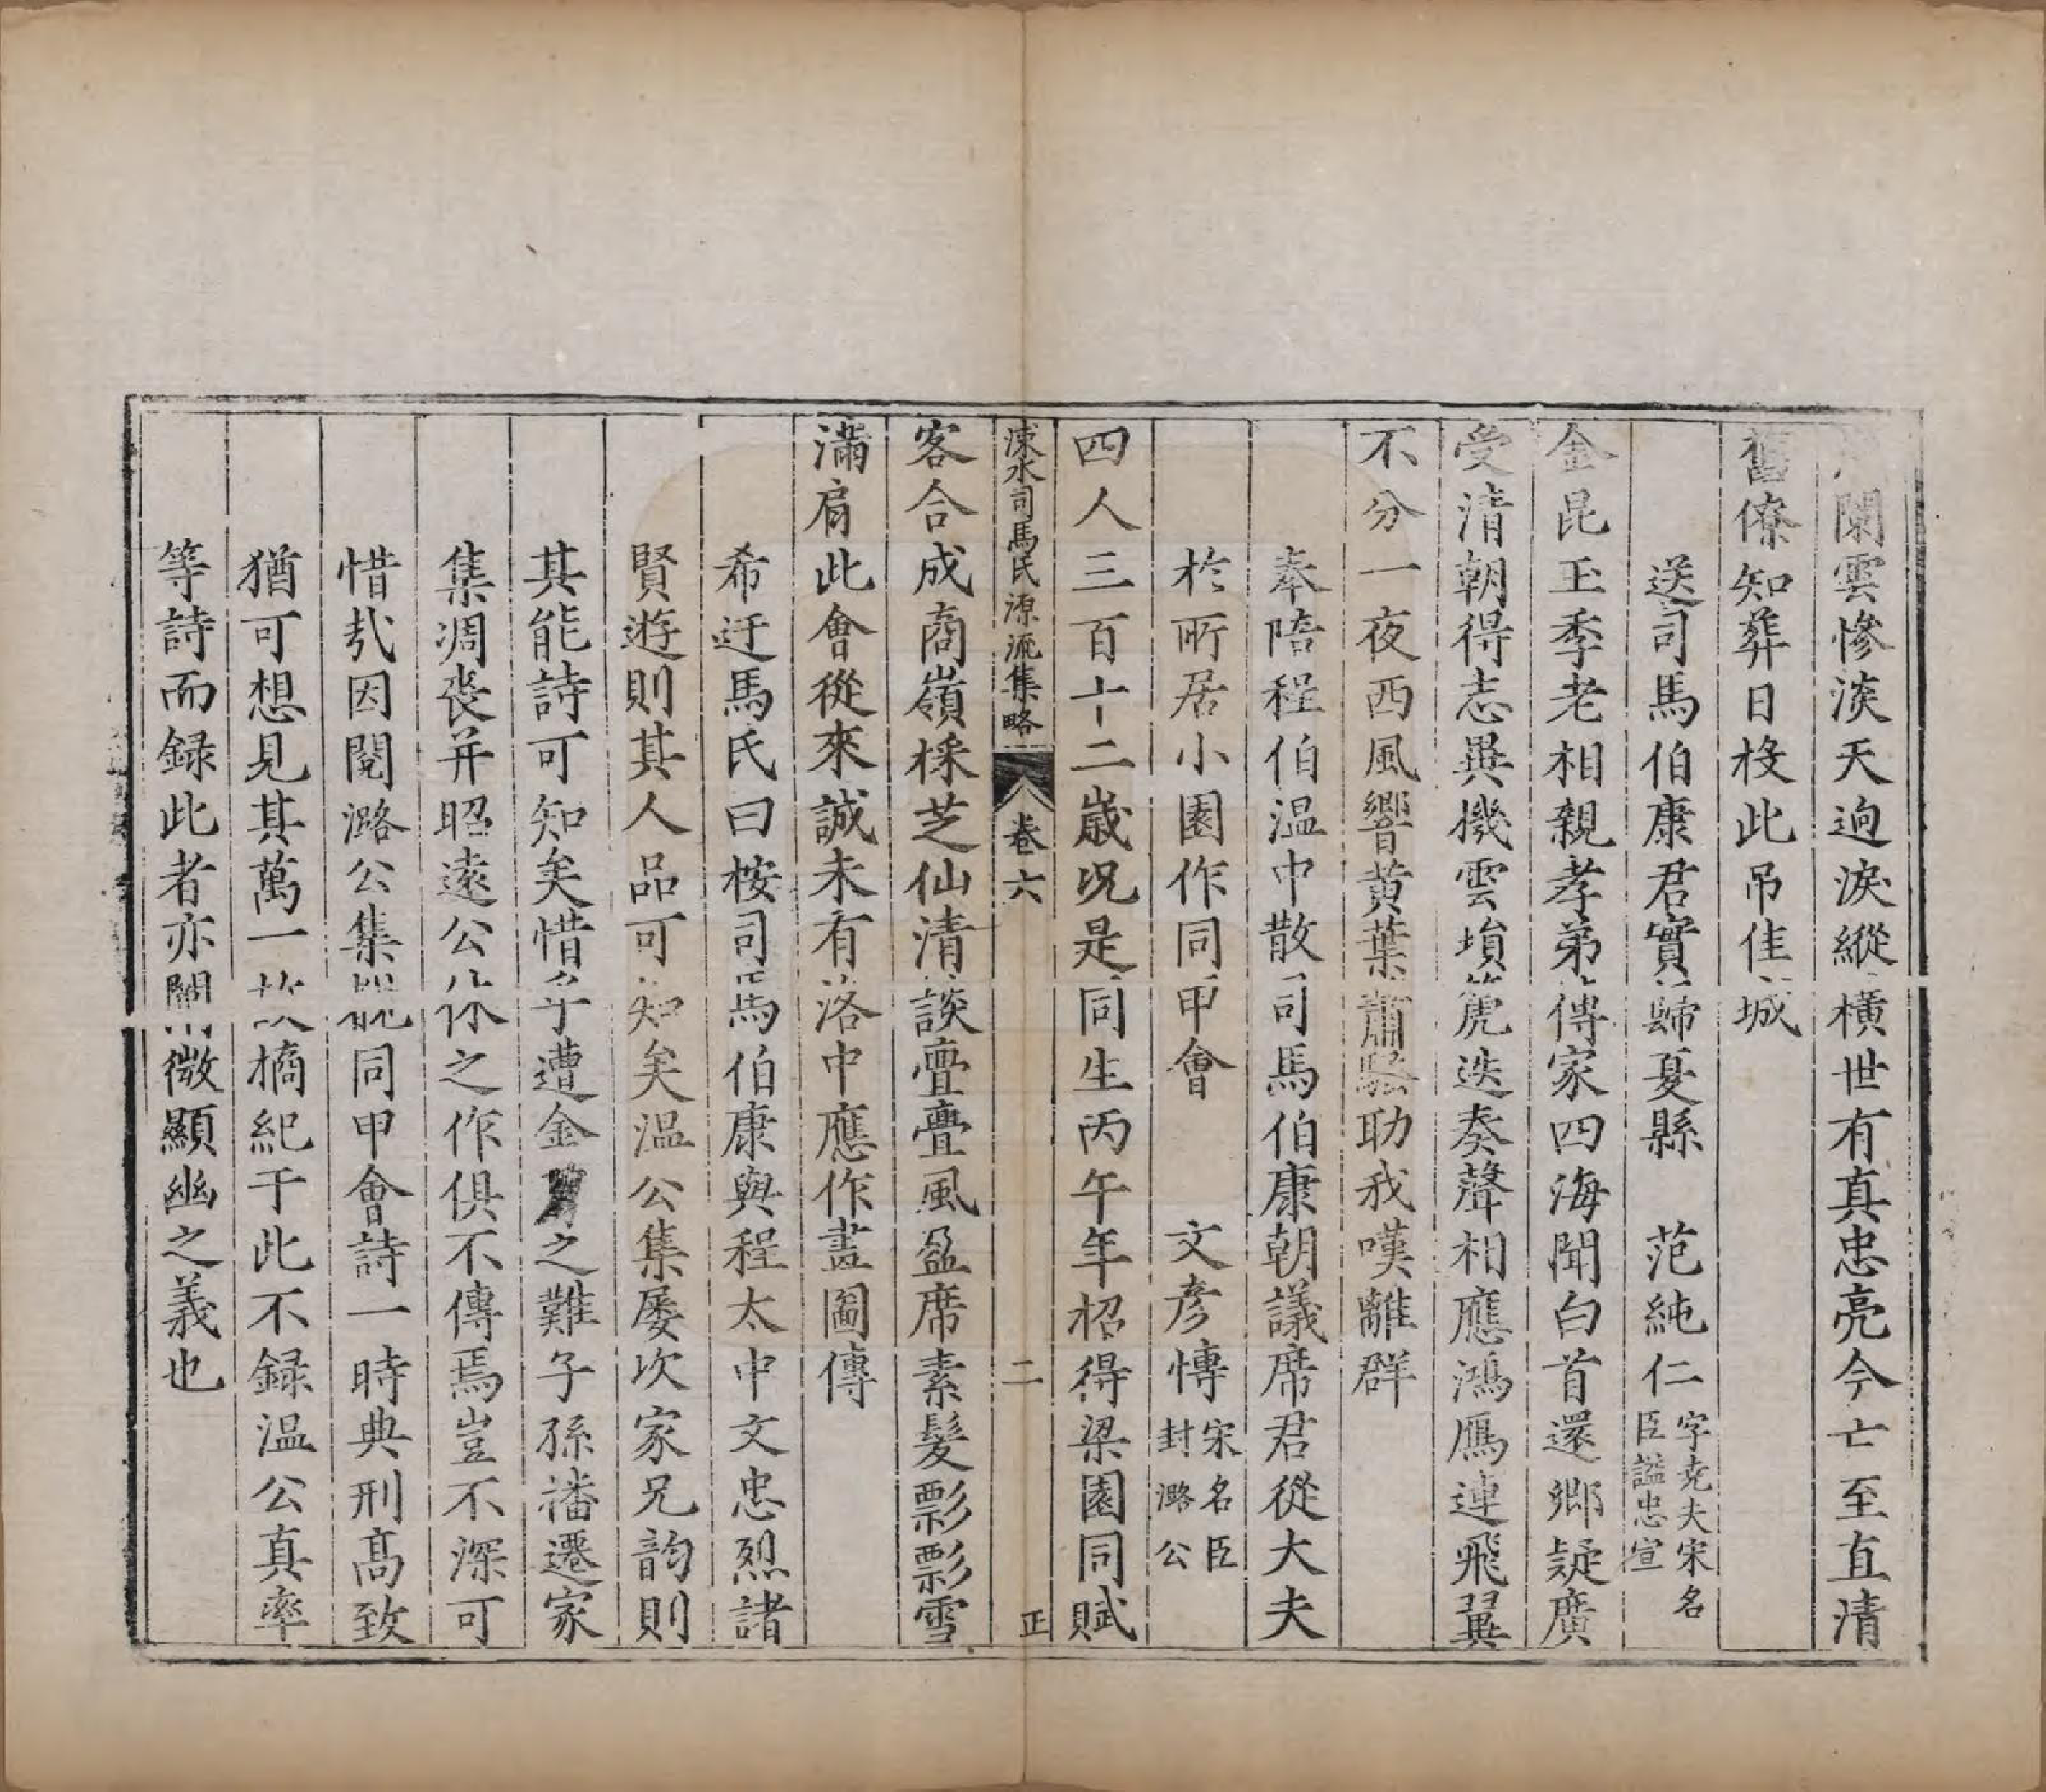 闌雲慘淡天逈淚縱橫世有真忠亮今亡至直清
舊僚知葬日挍此吊佳城
送司馬伯康君實歸夏縣 范純仁字尭夫宋名臣謚忠宣
金昆玉季老相親孝弟傳家四海聞白首還鄉疑廣
受清朝得志異機雲塤箎迭奏聲相應鴻鴈連飛翼
不分一夜西風響黃葉蕭騷助我嘆離群
奉陪程伯温中散司馬伯康朝議席君從大夫
於所居小園作同甲會 文彥愽宋名臣封潞公
四人三百十二歲况是同生丙午年招得梁園同賦
涑水司馬氏源流集略 卷六 二 正
客合成商嶺採芝仙清談亹亹風盈席素髮飄飄雪
滿肩此會從來誠未有洛中應作畫圖傳
希迂馬氏曰桉司馬伯康與程太中文忠烈諸
賢遊則其人品可知矣温公集屡次家兄韵則
其能詩可知矣惜乎遭金之難子孫播遷家
集凋喪并昭遠公休之作俱不傳焉豈不深可
惜㢤因閱潞公集同甲會詩一時典刑髙致
猶可想見其萬一故摘紀于此不録温公真率
等詩而録此者亦闡微顯幽之義也